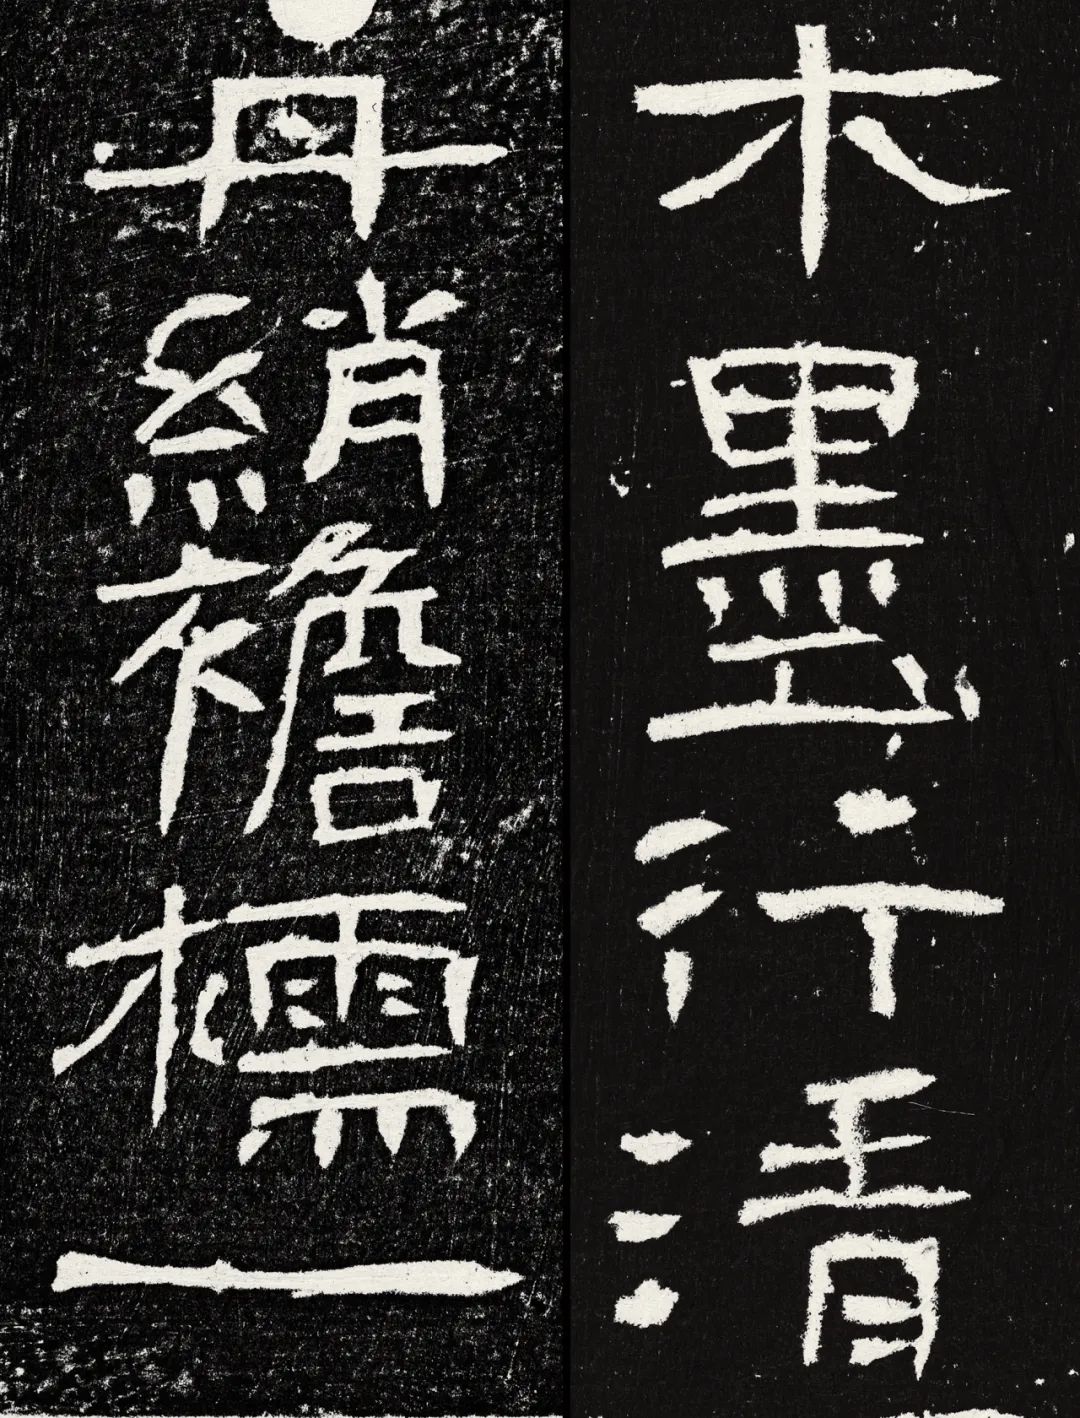 木墨行清
丹綃襜檽一